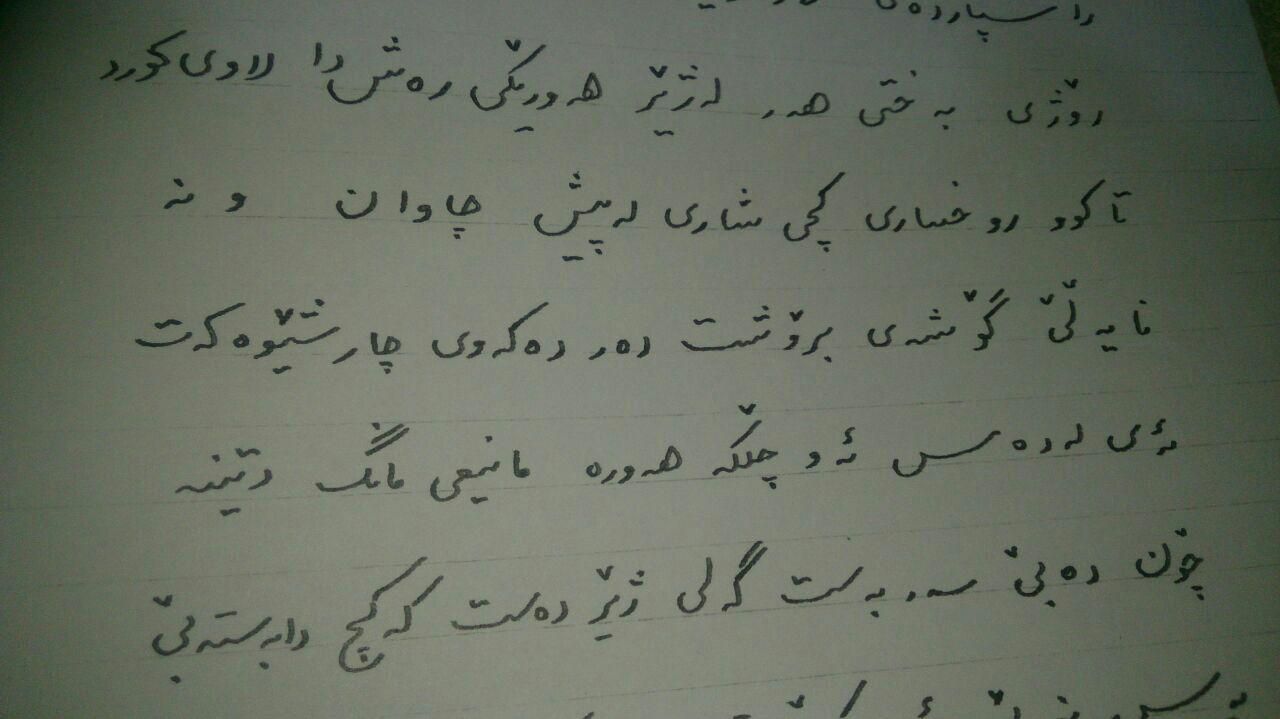 راسپاردەی
رۆژی بەختی هەر لەژێر هەورێکی رەش دا لاوی کورد
تاکوو روخساری کچی شاری لەپێش چاوان ونە
نایەڵێ گۆشەی برۆشت دەر دەکەوی چارشێوەکەت
ئەی لەدەس ئەو چڵکە هەورە مانیعی مانگ دێنە
چۆن دەبێ سەربەست گەلی ژێردەست کە کچ دابەستەبێ